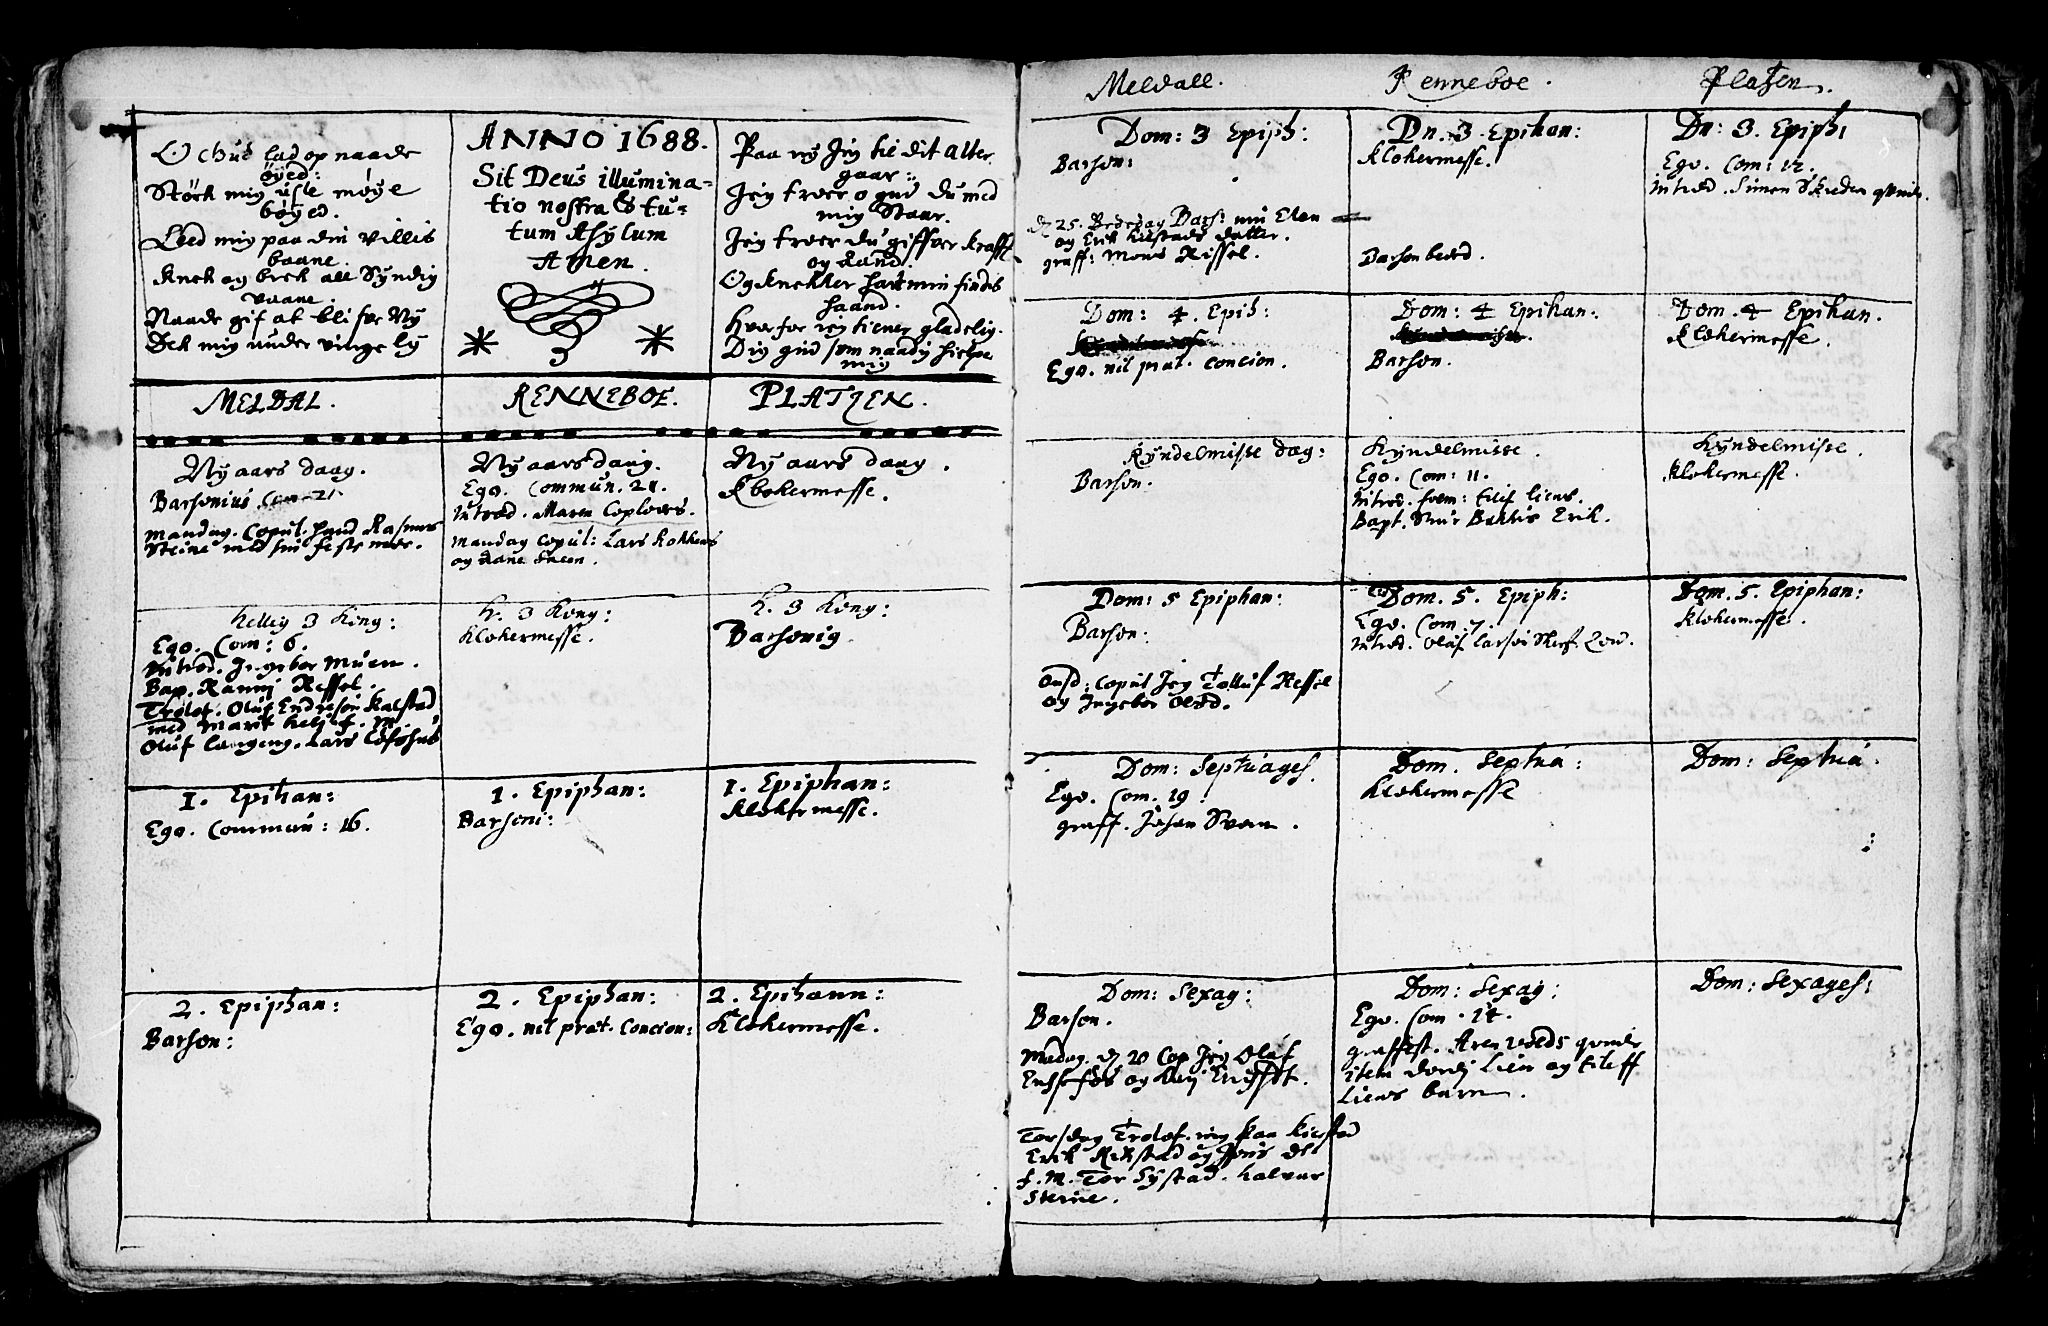 O Gud lad op naade
öyed:
Störk min usle möye
böyed.
Leed mig paa din villis
baane.
Knek og brek all Syndig
vaane.
Naade gif at blifve Ny
Dek mig under vinge ly
ANNO 1688.
Sit Deus illumina-
tio nostra & tu-
tum Asylum
Amen.
Paa ny Jeg til dit alter
gaar:
Jeg troer o gud du med
mig Staar.
Jeg troer du gifver krafft
og aand.
Og knekker hart min findes
haand.
Hvorfor jeg tiener gladelig.
Din gud som naadig hielpe
mig
MELDAL.
RENNEBOE.
PLATZEN.
Ny aars daag.
Barsonius. Com 21
mandag. Copul. hand Rasmus
Steine med sin feste møe.
Ny aars daag.
Ego. Commun. 21.
Introd. Maren Coploers.
mandag Copul: Lars Kokkens
og Aane Sneen.
Ny aars daag.
Klokermesse.
Hellig 3 King:
Ego. Com: 6.
Introd. Ingebor Muen.
Bap. Rannj Ressel.
Trolof. Oluf Endreson Kalstad
med Marit f. M.
Oluf Langeng. Lars
H. 3 Kong:
Klokermesse.
H. 3 Kong:
Barsonig.
1. Epihan:
Ego. Commun: 16.
1. Epiphan:
Barsoni:
1. Epiphan:
Klokermesse.
2. Epiphan:
Barson:
2. Epiphan:
Ego. nil præt. Concion:
2. Epihann:
Klokermesse.
Meldall.
Renneboe.
Platzen.
Dom: 3 Epiph:
Barson:
d 25. Bededag Bars: min Elen
og Erik Kilstads datter.
graff: Mons Rissel.
Dn. 3. Epihan:
Klokermesse.
Barson beded.
Dn: 3. Epiph:
Ego. Com: 12.
Introd. Simen Skreder qvinde.
Dom: 4. Epih:
Ego. nil præt. concion.
Dom: 4 Epihan:
Barson.
Dom. 4 Epihan.
Klokermesse.
Kyndelmisse dag:
Barson.
Kyndelmisse.
Ego. Com: 11.
Introd. foem: Eilif Liens.
Bapt. Siur Bakkis Erik.
Kyndelmisse.
Klokermesse.
Dom: 5 Epiphan:
Barson:
Onsd: Copul Jeg Tolluf Ressel
og Ingebor Olsd.
Dom. 5. Epiph:
Ego. Com. 7.
Introd. Oluf Larson
Dom. 5. Epiphan:
Klokermesse.
Dom: Septuages.
Ego. Com. 19:
graff. Johan Svorn.
Dom. Septua:
Klokermesse
Dom: Septua.
Dom: Sexag:
Barson.
Mandag. d 20 Cop Jeg Oluf
og
Torsdag Trolof. jeg paa
Erik Rikstad og
f. M. Tor Systad. Halvor
Steine.
Dom: Sexag:
Ego. Com. 14.
graffest. Aren qvinde
item Lien og Eileff
Liens barn.
Dom: Sexages: